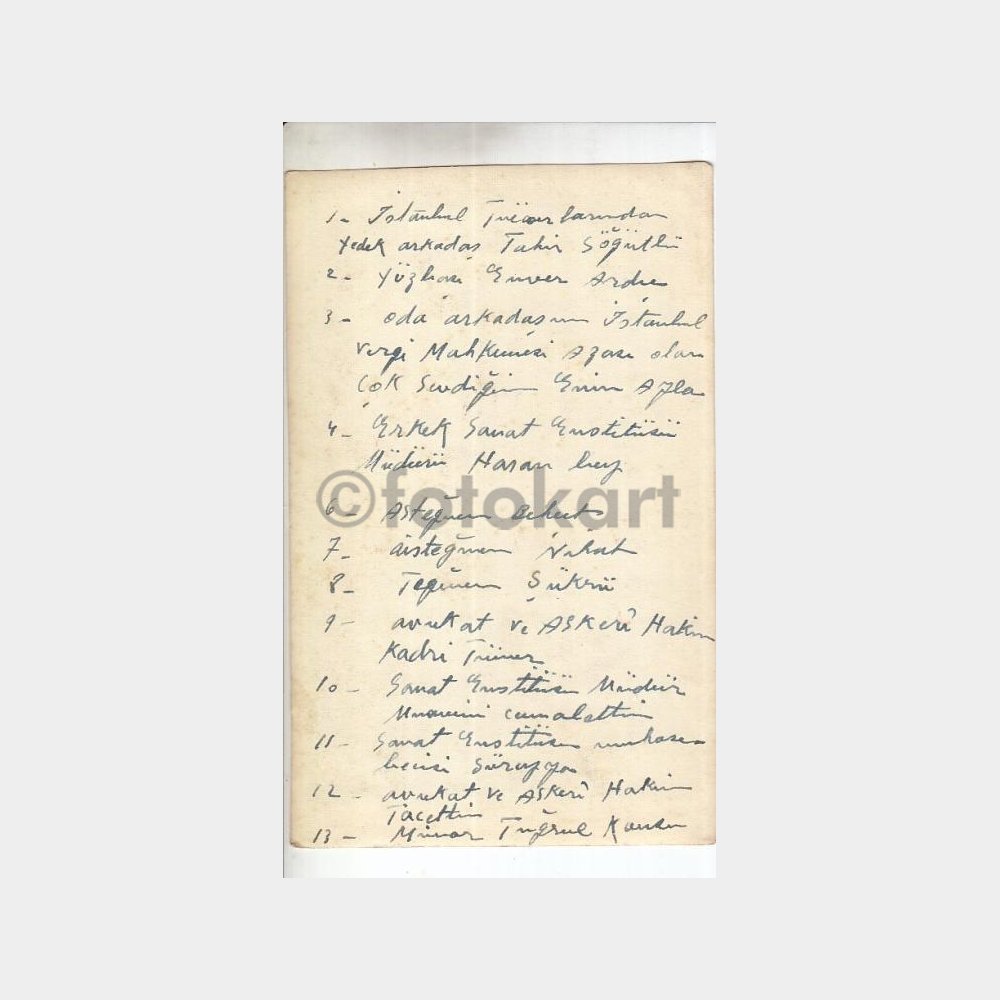 1- İstanbul Tüccarlarından
Yedek arkadaş Tahir Söğütlü
2- Yüzbaşı Enver
3- oda arkadaşım İstanbul
Vergi Mahkemesi Azası olan
Çok Sevdiğim Emin
4- Erkek Sanat Enstitüsü
Müdürü Hasan bey
©fotokart
6- Asteğmen
7- asteğmen Nihat
8- Teğmen Şükrü
9- avukat ve Askerî Hakim
Kadri Tümer
10- Sanat Enstitüsü Müdür
Muavini cemalettin
11- Sanat Enstitüsü muhase-
becisi Süreyya
12- avukat ve Askerî Hakim
Tacettin
13- Mimar Tuğrul